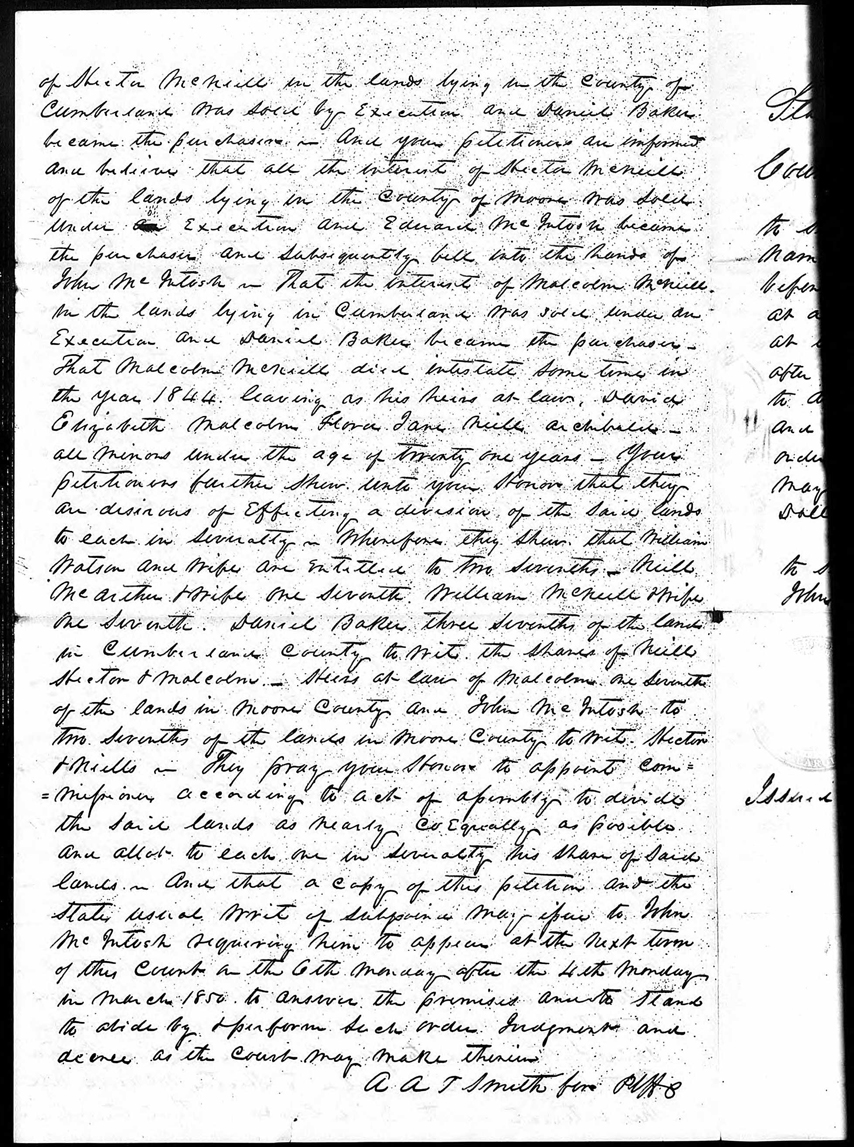 of Hector McNeill in the lands lying in the County of
Cumberland was sold by Execution and Daniel Baker
became the purchaser – And your petitioners are informed
and believe that all the interest of Hector McNeill
of the lands lying in the County of Moore was sold
under an Execution and Edward McIntosh became
the purchaser and subsequently fell into the hands of
John McIntosh – That the interest of Malcolm McNeill
in the lands lying in Cumberland was sold under an
Execution and Daniel Baker became the purchaser –
That Malcolm McNeill died intestate some time in
the year 1844 leaving as his heirs at law, David
Elizabeth Malcolm Flora Jane Neill Archibald –
all minors under the age of twenty one years – Your
petitioners further show unto your Honor that they
are desirous of Effecting a division of the said lands
to each in severalty – Wherefore they shew that William
Watson and wife are entitled to two sevenths – Neill
McArthur & wife one seventh William McNeill & wife
one seventh. Daniel Baker three sevenths of the lands
in Cumberland County to wit. the shares of Neill
Hector & Malcolm – Heirs at law of Malcolm one seventh
of the lands in Moore County and John McIntosh to
two sevenths of the lands in Moore County to wit. Hector
& Neills – They pray your Honor to appoint com=
=missioners according to act of assembly to divide
the said lands as nearly CoEqually as posible
and allot to each one in severalty his share of said
lands – And that a copy of this petition and the
States usual writ of subpoina may issue to John
McIntosh requiring him to appear at the next term
of this Court on the 6th Monday after the 4th Monday
in March 1850 to answer the premises and to stand
to abide by & perform such order Judgment and
decree as the Court may make therein
A A T Smith for Plffs
to
and
may
to
John
Issued